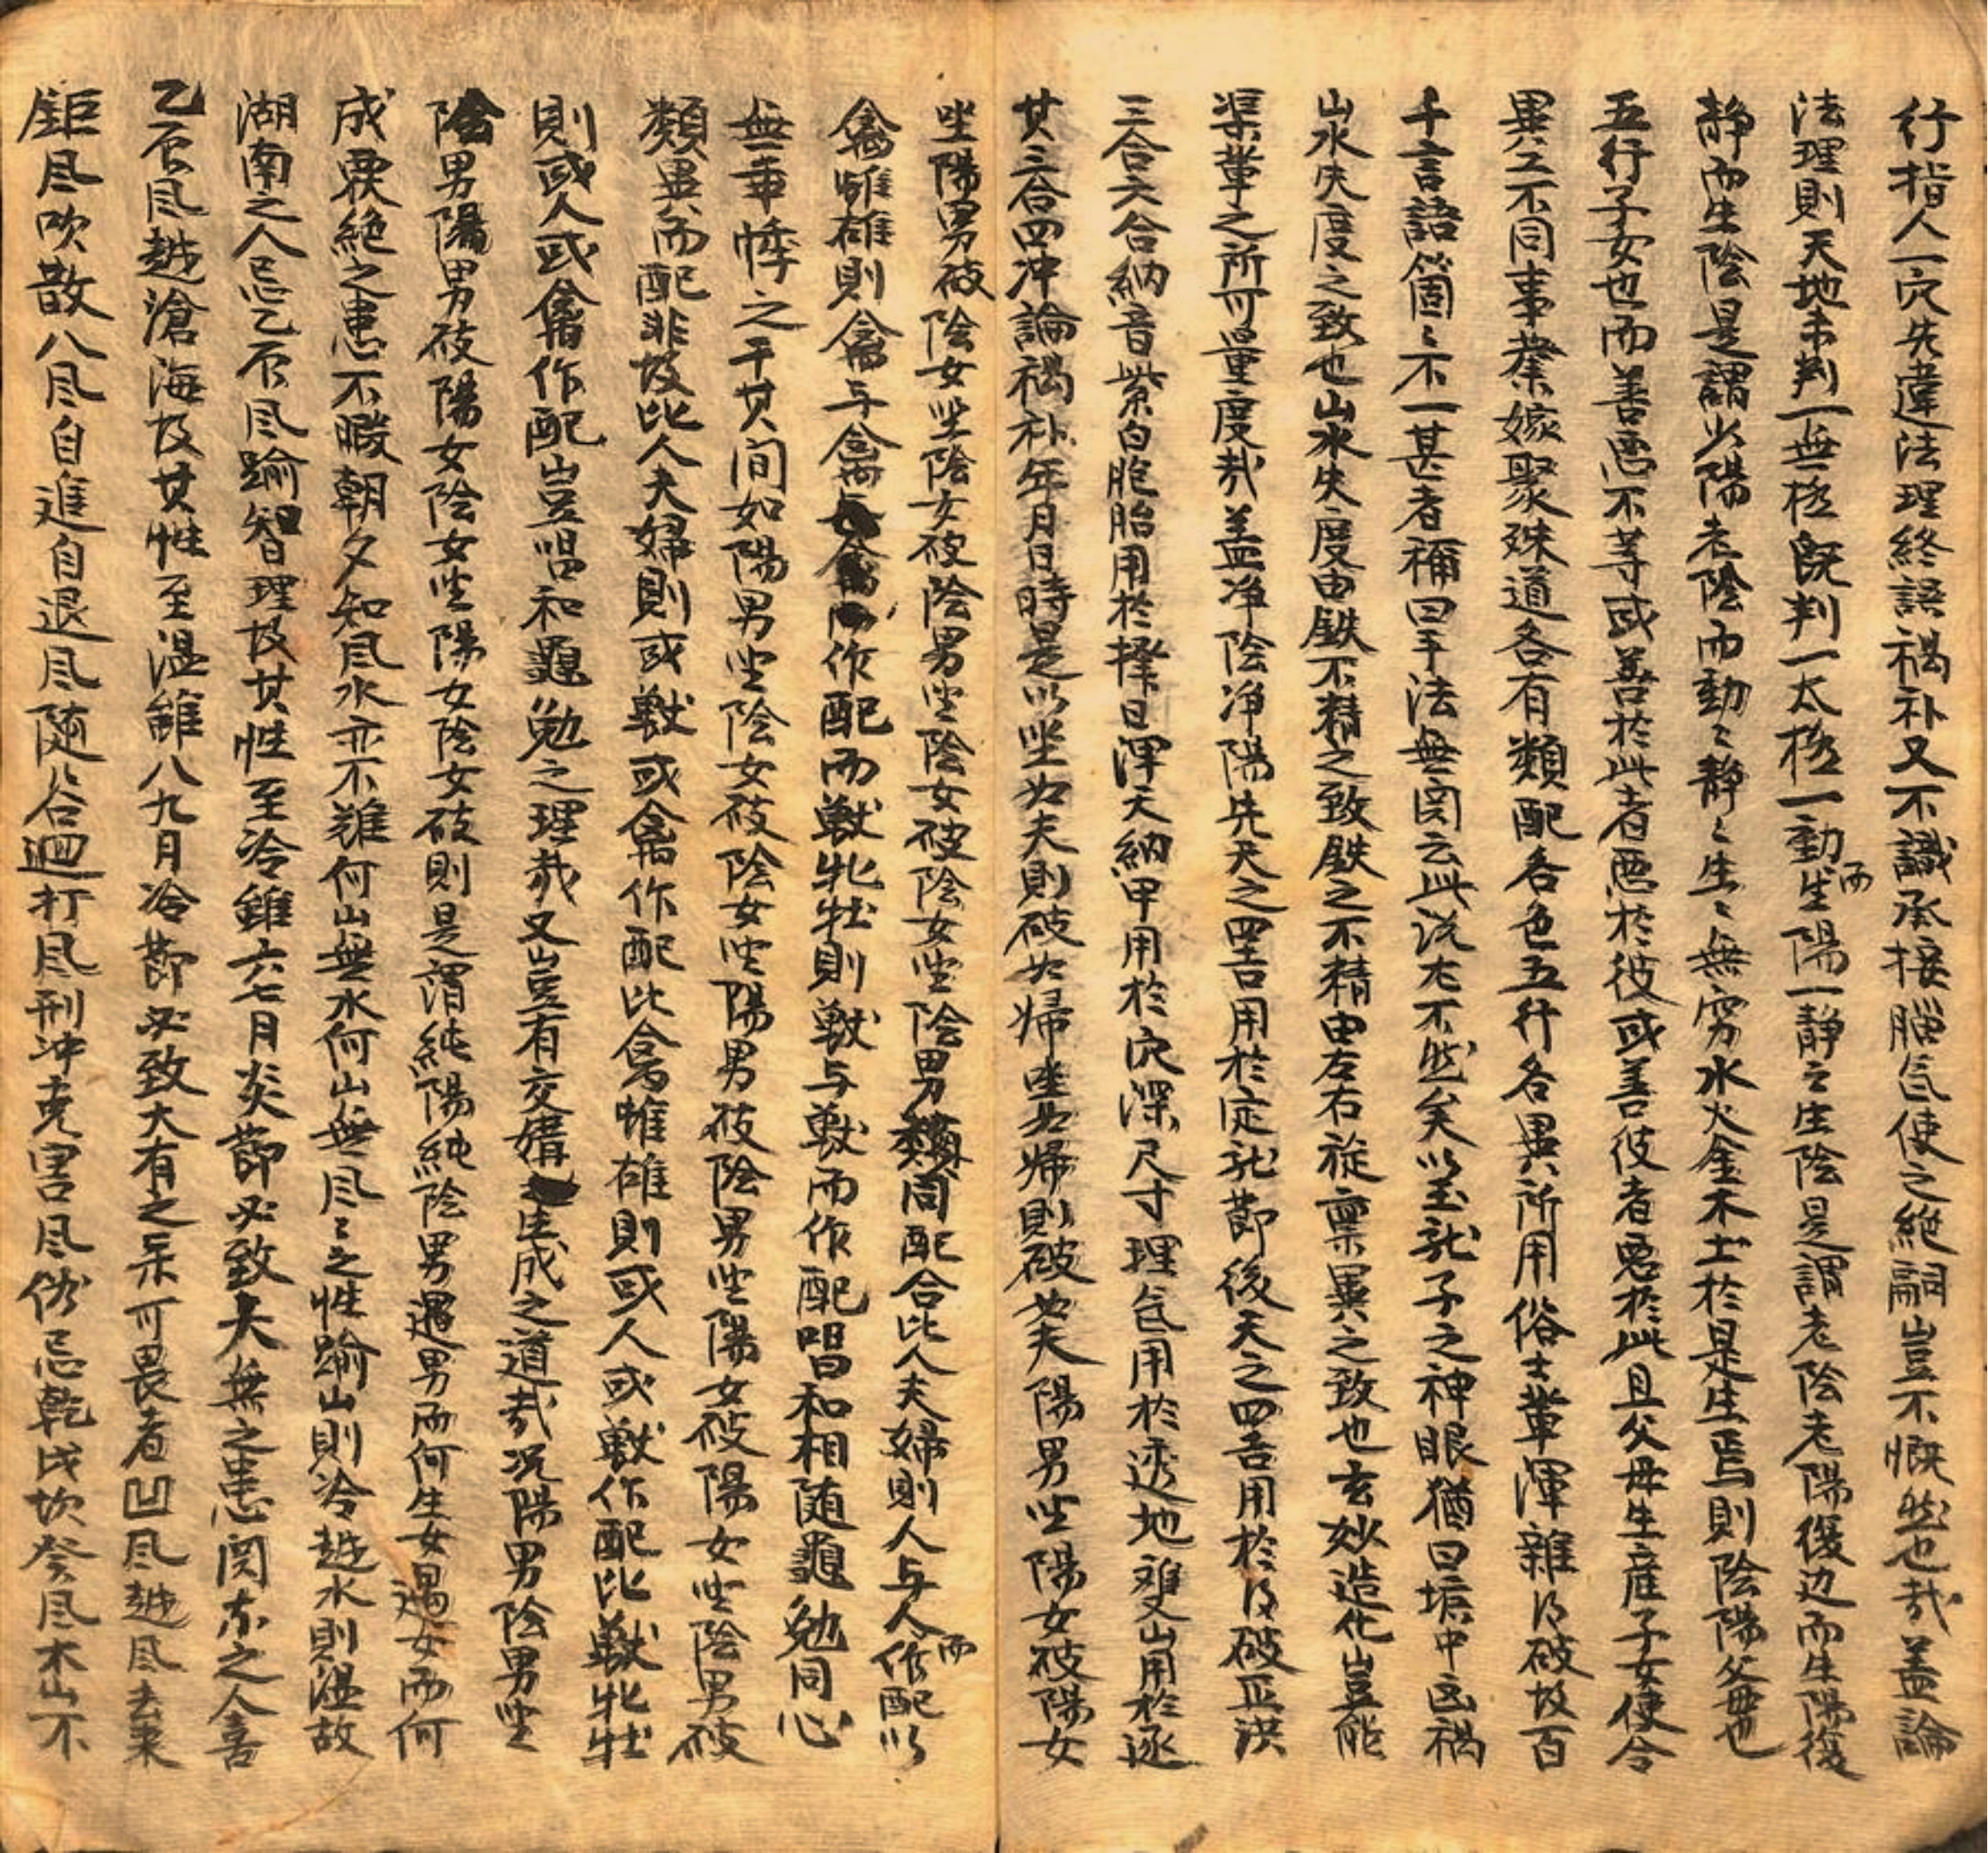 行指人一穴先違法理終語禍补又不識承接腦氣使之絶嗣豈不慨然也哉盖論
法理則天地未判一無极既判一太极一動而生陽一静之生陰是謂老陰老陽復边而生陽復
静而生陰是謂少陽老陰而動〻静〻生〻無窮水火金木土於是生焉則陰陽父母也
五行子女也而善惡不等或善於此者惡於彼或善彼者惡於此且父母生産子女使令
異工不同事業嫁聚殊道各有類配各色五行各異所用俗士輩渾雜以破故百
千言語箇〻不一甚者稱曰手法無関云此说尤不然矣以玉龍子之神眼猶曰壙中凶禍
山水失度之致也山水失度由鉄不精之致鉄之不精由左右旋稟異之致也玄妙造化豈能
渠輩之所可量度哉盖净陰净陽先天之四吉用於定龍節後天之四吉用於以破正洪
三合六合納音紫白胞胎用於擇日渾天納甲用於穴深尺寸理氣用於透地双山用於逐
其三合四冲論禍补年月日時是以坐如夫則破如婦坐如婦則破如夫陽男坐陽女破陽女
坐陽男破陰女坐陰女破陰男坐陰女破陰女坐陰男類同配合比人夫婦則人与人而作配以
禽雌雄則禽与禽作配而獸牝牡則獸与獸而作配唱和相随黽勉同心
無乖悖之干其间如陽男坐陰女破陰女坐陽男破陰男坐陽女破陽女坐陰男破
類異而配非故比人夫婦則或獸或禽作配比禽雌雄則或人或獸作配比獸牝牡
則或人或禽作配豈唱和黽勉之理哉又豈有交媾生成之道哉况陽男陰男坐
陰男陽男破陽女陰女坐陽女陰女破則是謂純陽純陰男遇男而何生女遇女而何
成覆絶之患不暇朝夕知風水亦不難何山無水何山無風〻之性踰山則冷越水則温故
湖南之人忌乙辰風踰智理故其性至冷雖六七月炎節必致大無之患関东之人喜
乙辰風越滄海故其性至温雖八九月冷節必致大有之禾可畏者凹風越風去来
鉅风吹散八风自進自退风随谷廻打风刑冲克害风俗忌乾戌坎癸风木山不